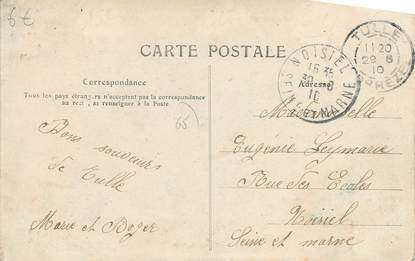 6€
CARTE POSTALE
NOISIEL
SEINE ET MARNE
TULLE
11 20
29 8
10
CORREZE
Correspondance
Tous les pays étrangers n'acceptent pas la correspondance
au recto, se renseigner à la Poste
Adresse
65
Bons souvenirs
de Tulle
Marie et Roger
Mademoiselle
Eugénie Leymarie
Rue des Ecoles
Noisiel
Seine et marne